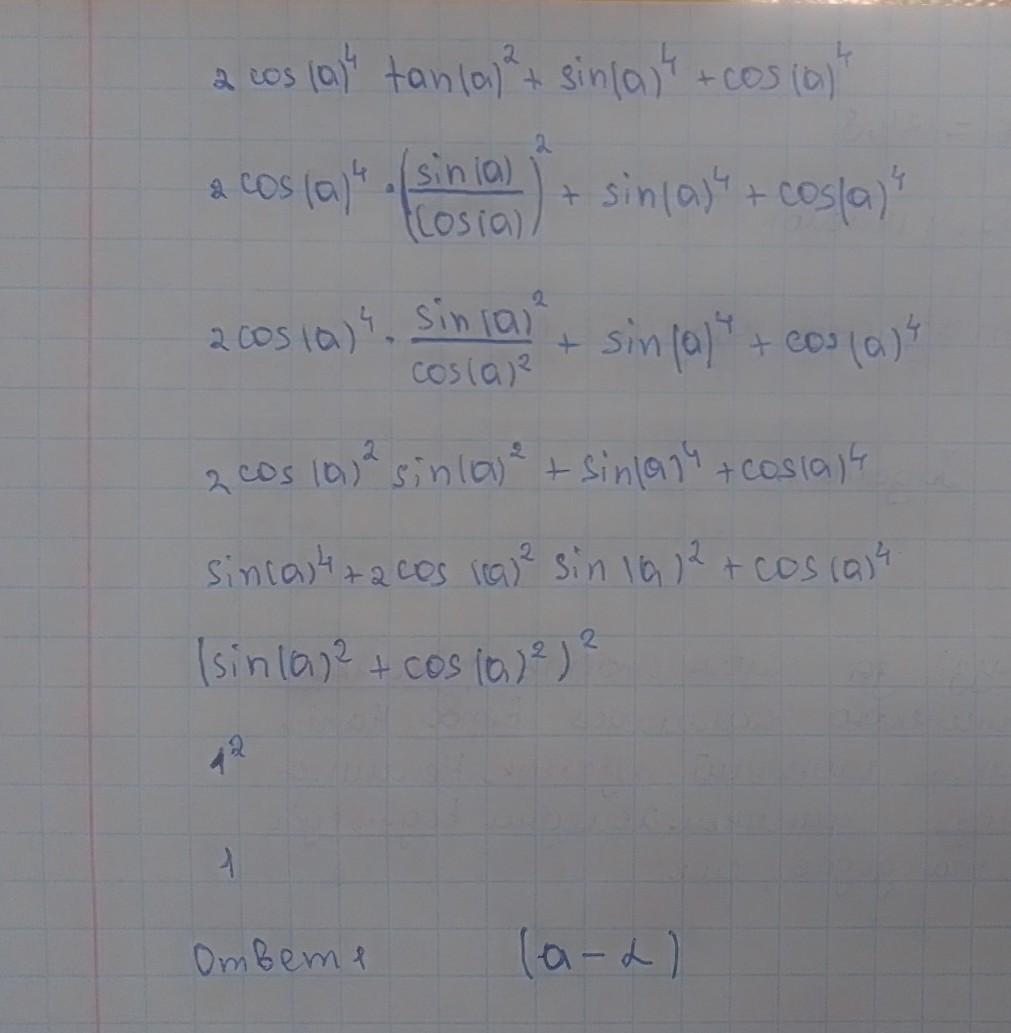 2 cos(a)⁴ tan(a)² + sin(a)⁴ + cos(a)⁴
2 cos(a)⁴ · (sin(a)/cos(a))² + sin(a)⁴ + cos(a)⁴
2 cos(a)⁴ · sin(a)²/cos(a)² + sin(a)⁴ + cos(a)⁴
2 cos(a)² sin(a)² + sin(a)⁴ + cos(a)⁴
sin(a)⁴ + 2 cos(a)² sin(a)² + cos(a)⁴
(sin(a)² + cos(a)²)²
1²
1
Ответ 1 (a - α)